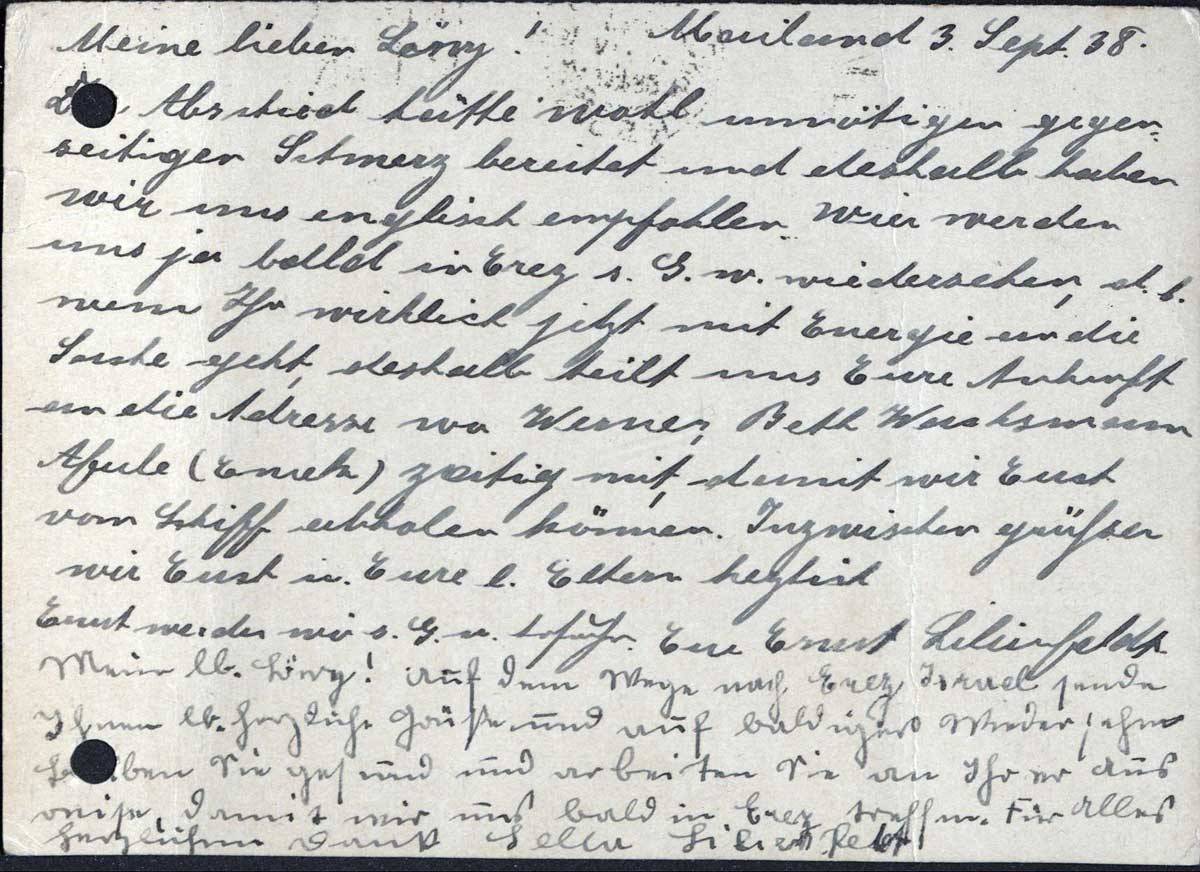 Mailand 3. Sept. 38.
Meine lieben Löwy!
Abschied hätte wohl unnötigen gegen-
seitigen Schmerz bereitet und deshalb haben
wir uns englisch empfohlen. Wir werden
uns ja balld in Erez s. G. w. wiedersehen, d. h.
wenn Ihr wirklich jetzt mit Energie an die
Sache geht, deshalb teilt uns Eure Ankunft
an die Adresse von Werner, Beth Wachsmann
Afule (Emek) zeitig mit, damit wir Euch
vom Schiff abholen können. Inzwischen grüßen
wir Euch u. Eure l. Eltern herzlich
werden wir s. G. w. Eure Ernst Lilienfelds
Mein lb. Löwy! Auf dem Wege nach Erez Israel sende
Ihnen lb. herzliche Grüße und auf baldiges Wiedersehn
Sie gesund und arbeiten Sie an Ihrer Aus
reise, damit wir uns bald in Erez treffen. Für Alles
herzlichen Dank Sella Lilienfeld